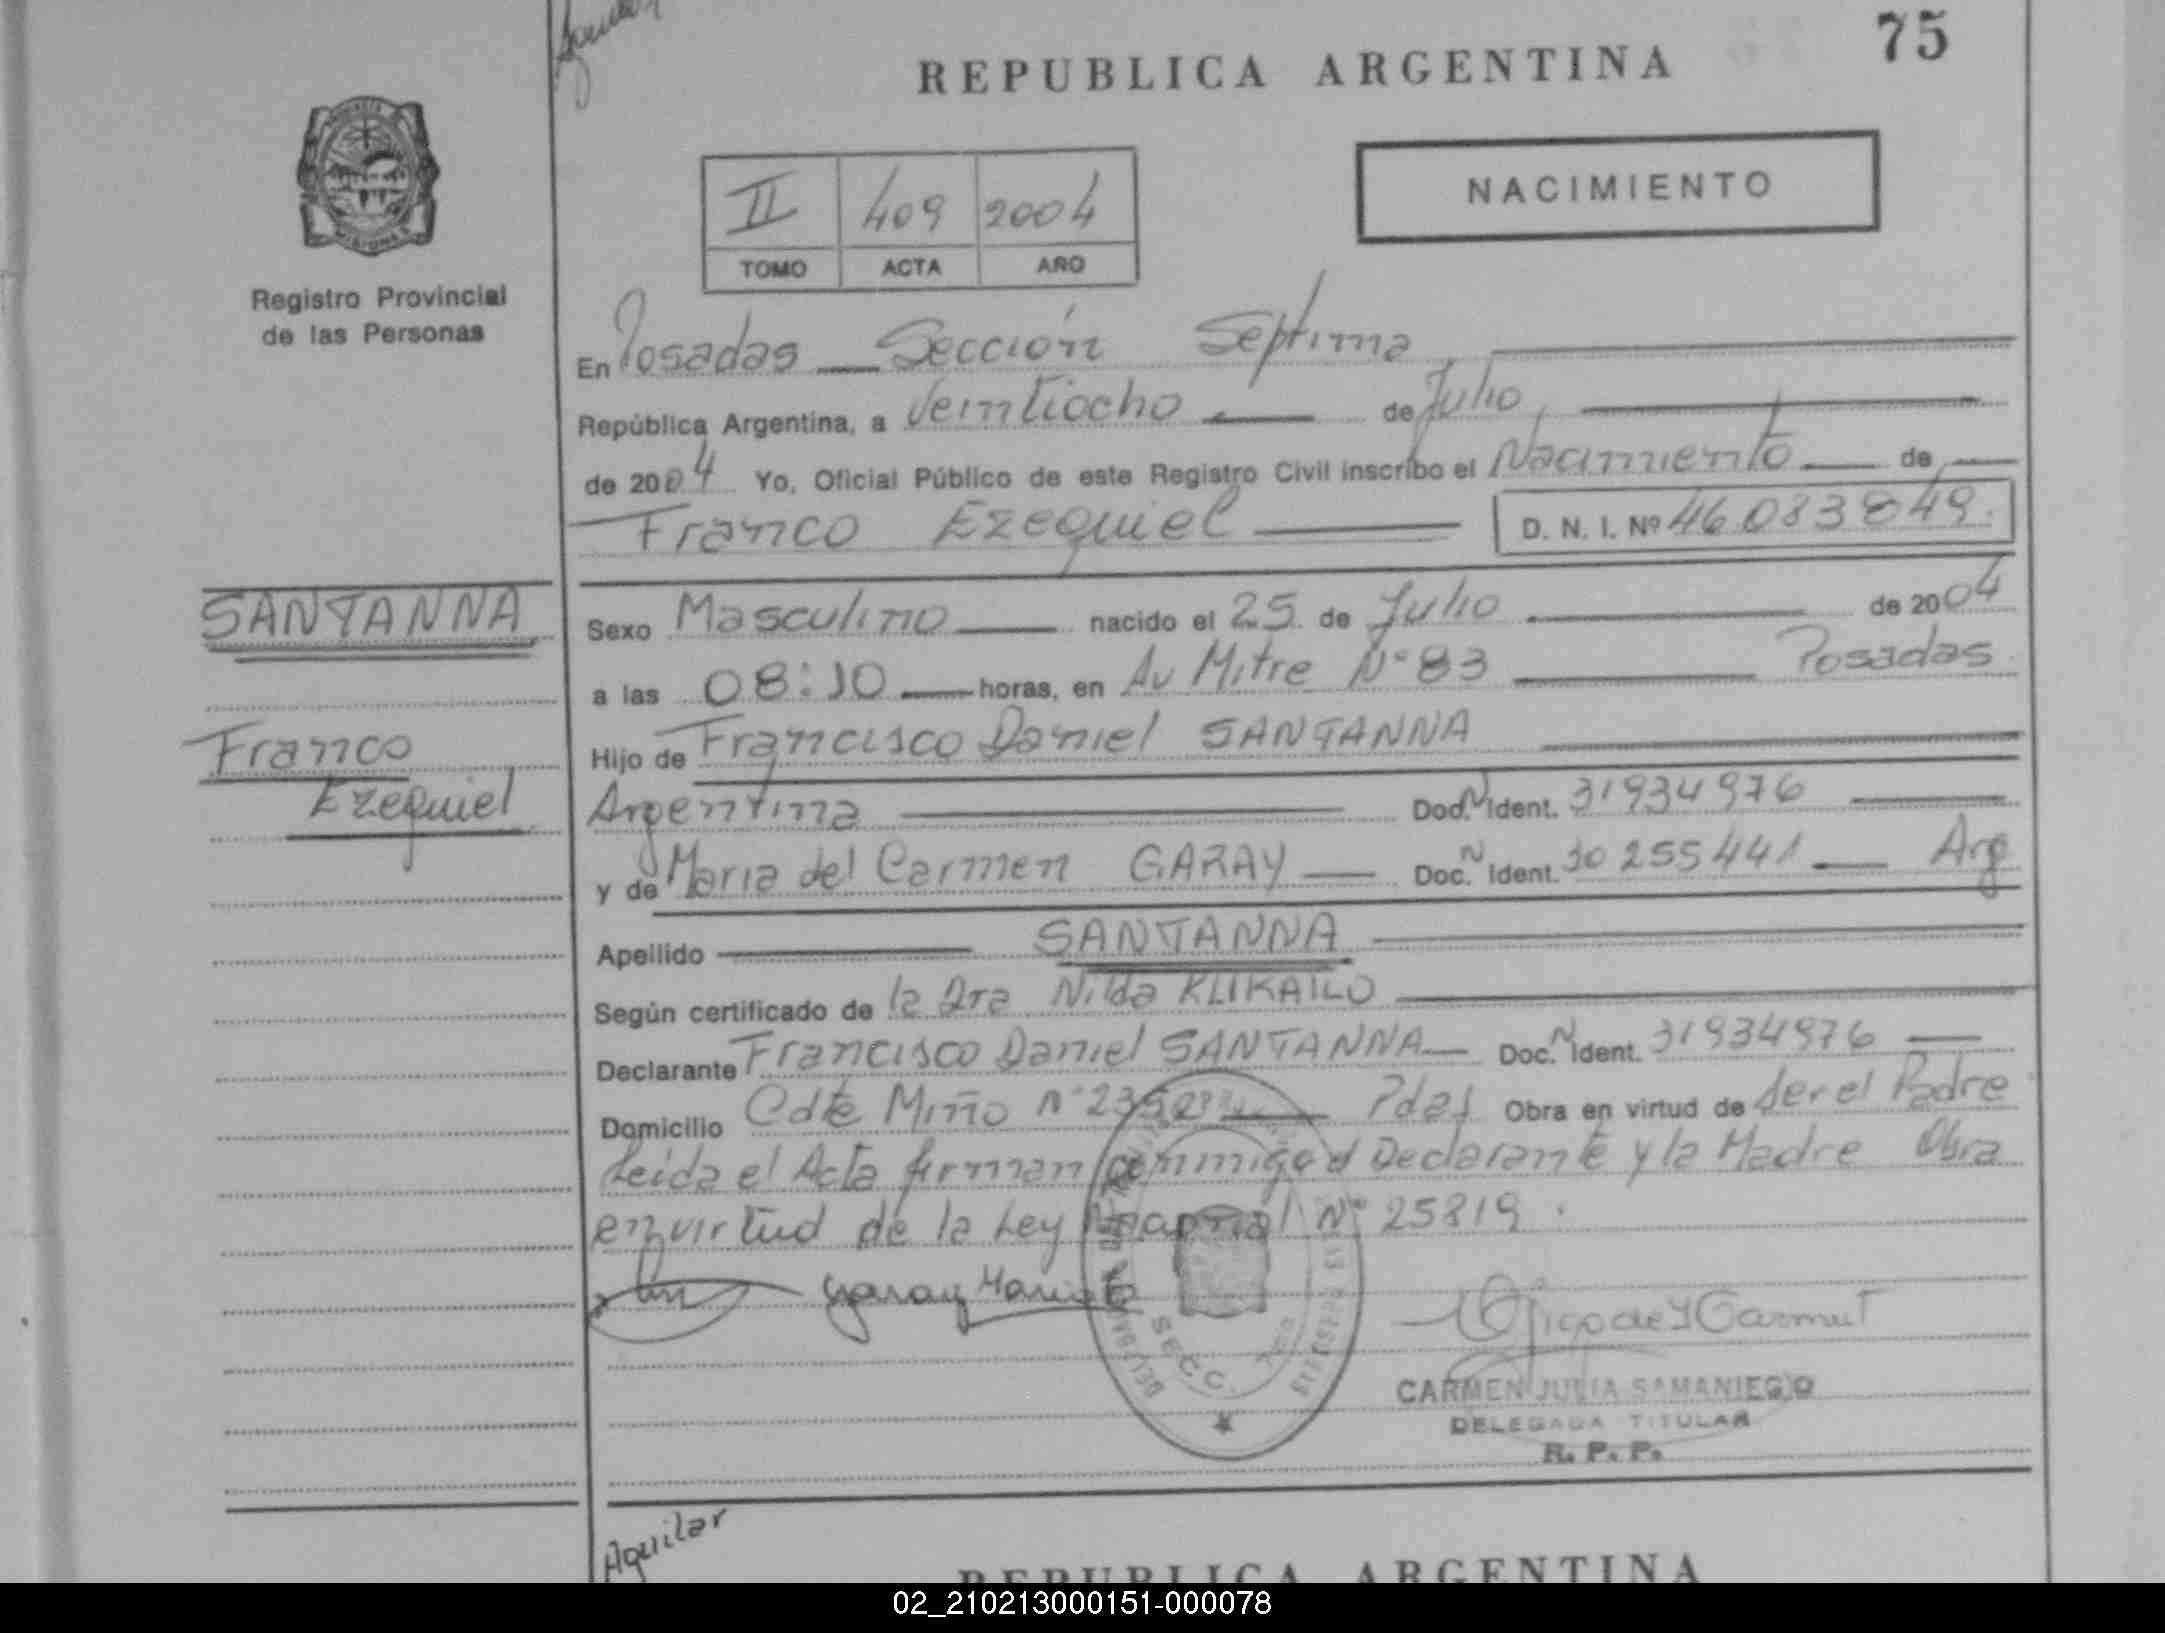 75
REPUBLICA ARGENTINA
NACIMIENTO
II 409 2004
TOMO ACTA AÑO
Registro Provincial
de las Personas
En Posadas Sección Septima
República Argentina, a Veintiocho de Julio,
de 2004 Yo, Oficial Público de este Registro Civil inscribo el Nacimiento de
Franco Ezequiel D. N. I. Nº 46.083849.
SANTANNA
Franco
Ezequiel
Sexo Masculino nacido el 25 de Julio de 2004
a las 08:10 horas, en Av Mitre Nº 83 Posadas
Hijo de Francisco Daniel SANTANNA
Argentina Doc. N Ident. 31934976
y de Maria del Carmen GARAY Doc. N Ident. 30255441 Arg
Apellido SANTANNA
Según certificado de la Dra Nilda KLIKAILO
Declarante Francisco Daniel SANTANNA Doc. N Ident. 31934976
Domicilio Cdte Miño Nº Pdas Obra en virtud de ser el Padre
Leida el Acta firman conmigo el Declarante y la Madre Obra
en virtud de la Ley Nacional Nº 25819.
Garay Maria
SECC. 7ma
CARMEN JULIA SAMANIEGO
DELEGADA TITULAR
R. P. P.
Aguilar
REPUBLICA ARGENTINA
02_210213000151-000078